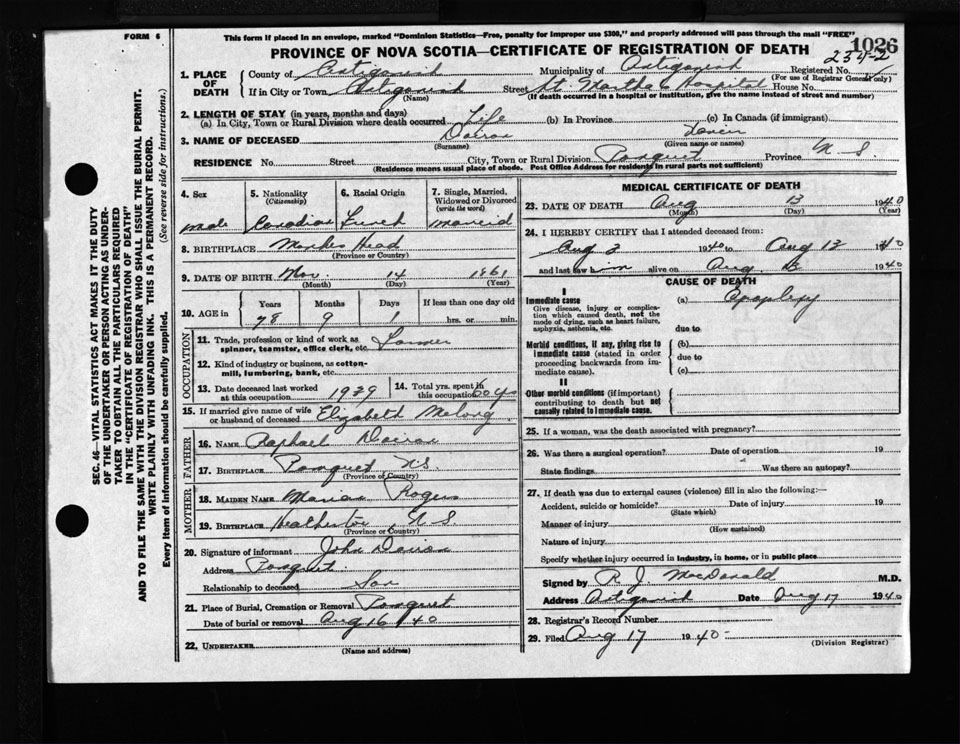 FORM 6
This form if placed in an envelope, marked "Dominion Statistics—Free, penalty for improper use $300," and properly addressed will pass through the mail "FREE"
1026
PROVINCE OF NOVA SCOTIA—CERTIFICATE OF REGISTRATION OF DEATH
2342
1. PLACE OF DEATH
County of Antigonish Municipality of Antigonish Registered No.
(For use of Registrar General only)
If in City or Town Antigonish Street St Martha's Hospital House No.
(Name) (If death occurred in a hospital or institution, give the name instead of street and number)
2. LENGTH OF STAY (in years, months and days)
(a) In City, Town or Rural Division where death occurred Life (b) In Province (c) In Canada (if immigrant)
3. NAME OF DECEASED Doiron
(Surname) (Given name or names)
RESIDENCE No. Street City, Town or Rural Division Pomquet Province N. S.
(Residence means usual place of abode. Post Office Address for residents in rural parts not sufficient)
4. Sex male
5. Nationality (Citizenship) Canadian
6. Racial Origin French
7. Single, Married, Widowed or Divorced (write the word) married
8. BIRTHPLACE Monks Head
(Province or Country)
9. DATE OF BIRTH Nov. 14 1861
(Month) (Day) (Year)
10. AGE in
Years Months Days If less than one day old
78 9 1 hrs. or min.
OCCUPATION
11. Trade, profession or kind of work as spinner, teamster, office clerk, etc. Farmer
12. Kind of industry or business, as cotton-mill, lumbering, bank, etc.
13. Date deceased last worked at this occupation 1939
14. Total yrs. spent in this occupation 60 yrs
15. If married give name of wife or husband of deceased Elizabeth Melong
FATHER
16. NAME Raphael Doiron
17. BIRTHPLACE Pomquet N.S.
(Province or Country)
MOTHER
18. MAIDEN NAME Rogers
19. BIRTHPLACE Heatherton N S.
(Province or Country)
20. Signature of informant John Doiron
Address Pomquet.
Relationship to deceased Son
21. Place of Burial, Cremation or Removal Pomquet
Date of burial or removal Aug 16 / 40
22. UNDERTAKER
(Name and address)
MEDICAL CERTIFICATE OF DEATH
23. DATE OF DEATH Aug 13 1940
(Month) (Day)
24. I HEREBY CERTIFY that I attended deceased from:
Aug 3 1940 to Aug 13 1940
and last saw him alive on Aug. 13 1940
CAUSE OF DEATH
I
Immediate cause (a) Apoplexy
Give disease, injury or complication which caused death, not the mode of dying, such as heart failure, asphyxia, asthenia, etc.
due to
Morbid conditions, if any, giving rise to immediate cause (stated in order proceeding backwards from immediate cause).
(b)
due to
(c)
II
Other morbid conditions (if important) contributing to death but not causally related to immediate cause.
25. If a woman, was the death associated with pregnancy?
26. Was there a surgical operation? Date of operation 19
State findings Was there an autopsy?
27. If death was due to external causes (violence) fill in also the following:—
Accident, suicide or homicide? Date of injury 19
(State which)
Manner of injury
(How sustained)
Nature of injury
Specify whether injury occurred in industry, in home, or in public place
Signed by R. J. MacDonald M.D.
Address Antigonish Date Aug 17 1940
28. Registrar's Record Number
29. Filed Aug 17 1940-
(Division Registrar)
SEC. 46—VITAL STATISTICS ACT MAKES IT THE DUTY
OF THE UNDERTAKER OR PERSON ACTING AS UNDER-
TAKER TO OBTAIN ALL THE PARTICULARS REQUIRED
IN THE "CERTIFICATE OF REGISTRATION OF DEATH"
AND TO FILE THE SAME WITH THE DIVISION REGISTRAR WHO SHALL ISSUE THE BURIAL PERMIT.
WRITE PLAINLY WITH UNFADING INK. THIS IS A PERMANENT RECORD.
Every item of information should be carefully supplied. (See reverse side for instructions.)